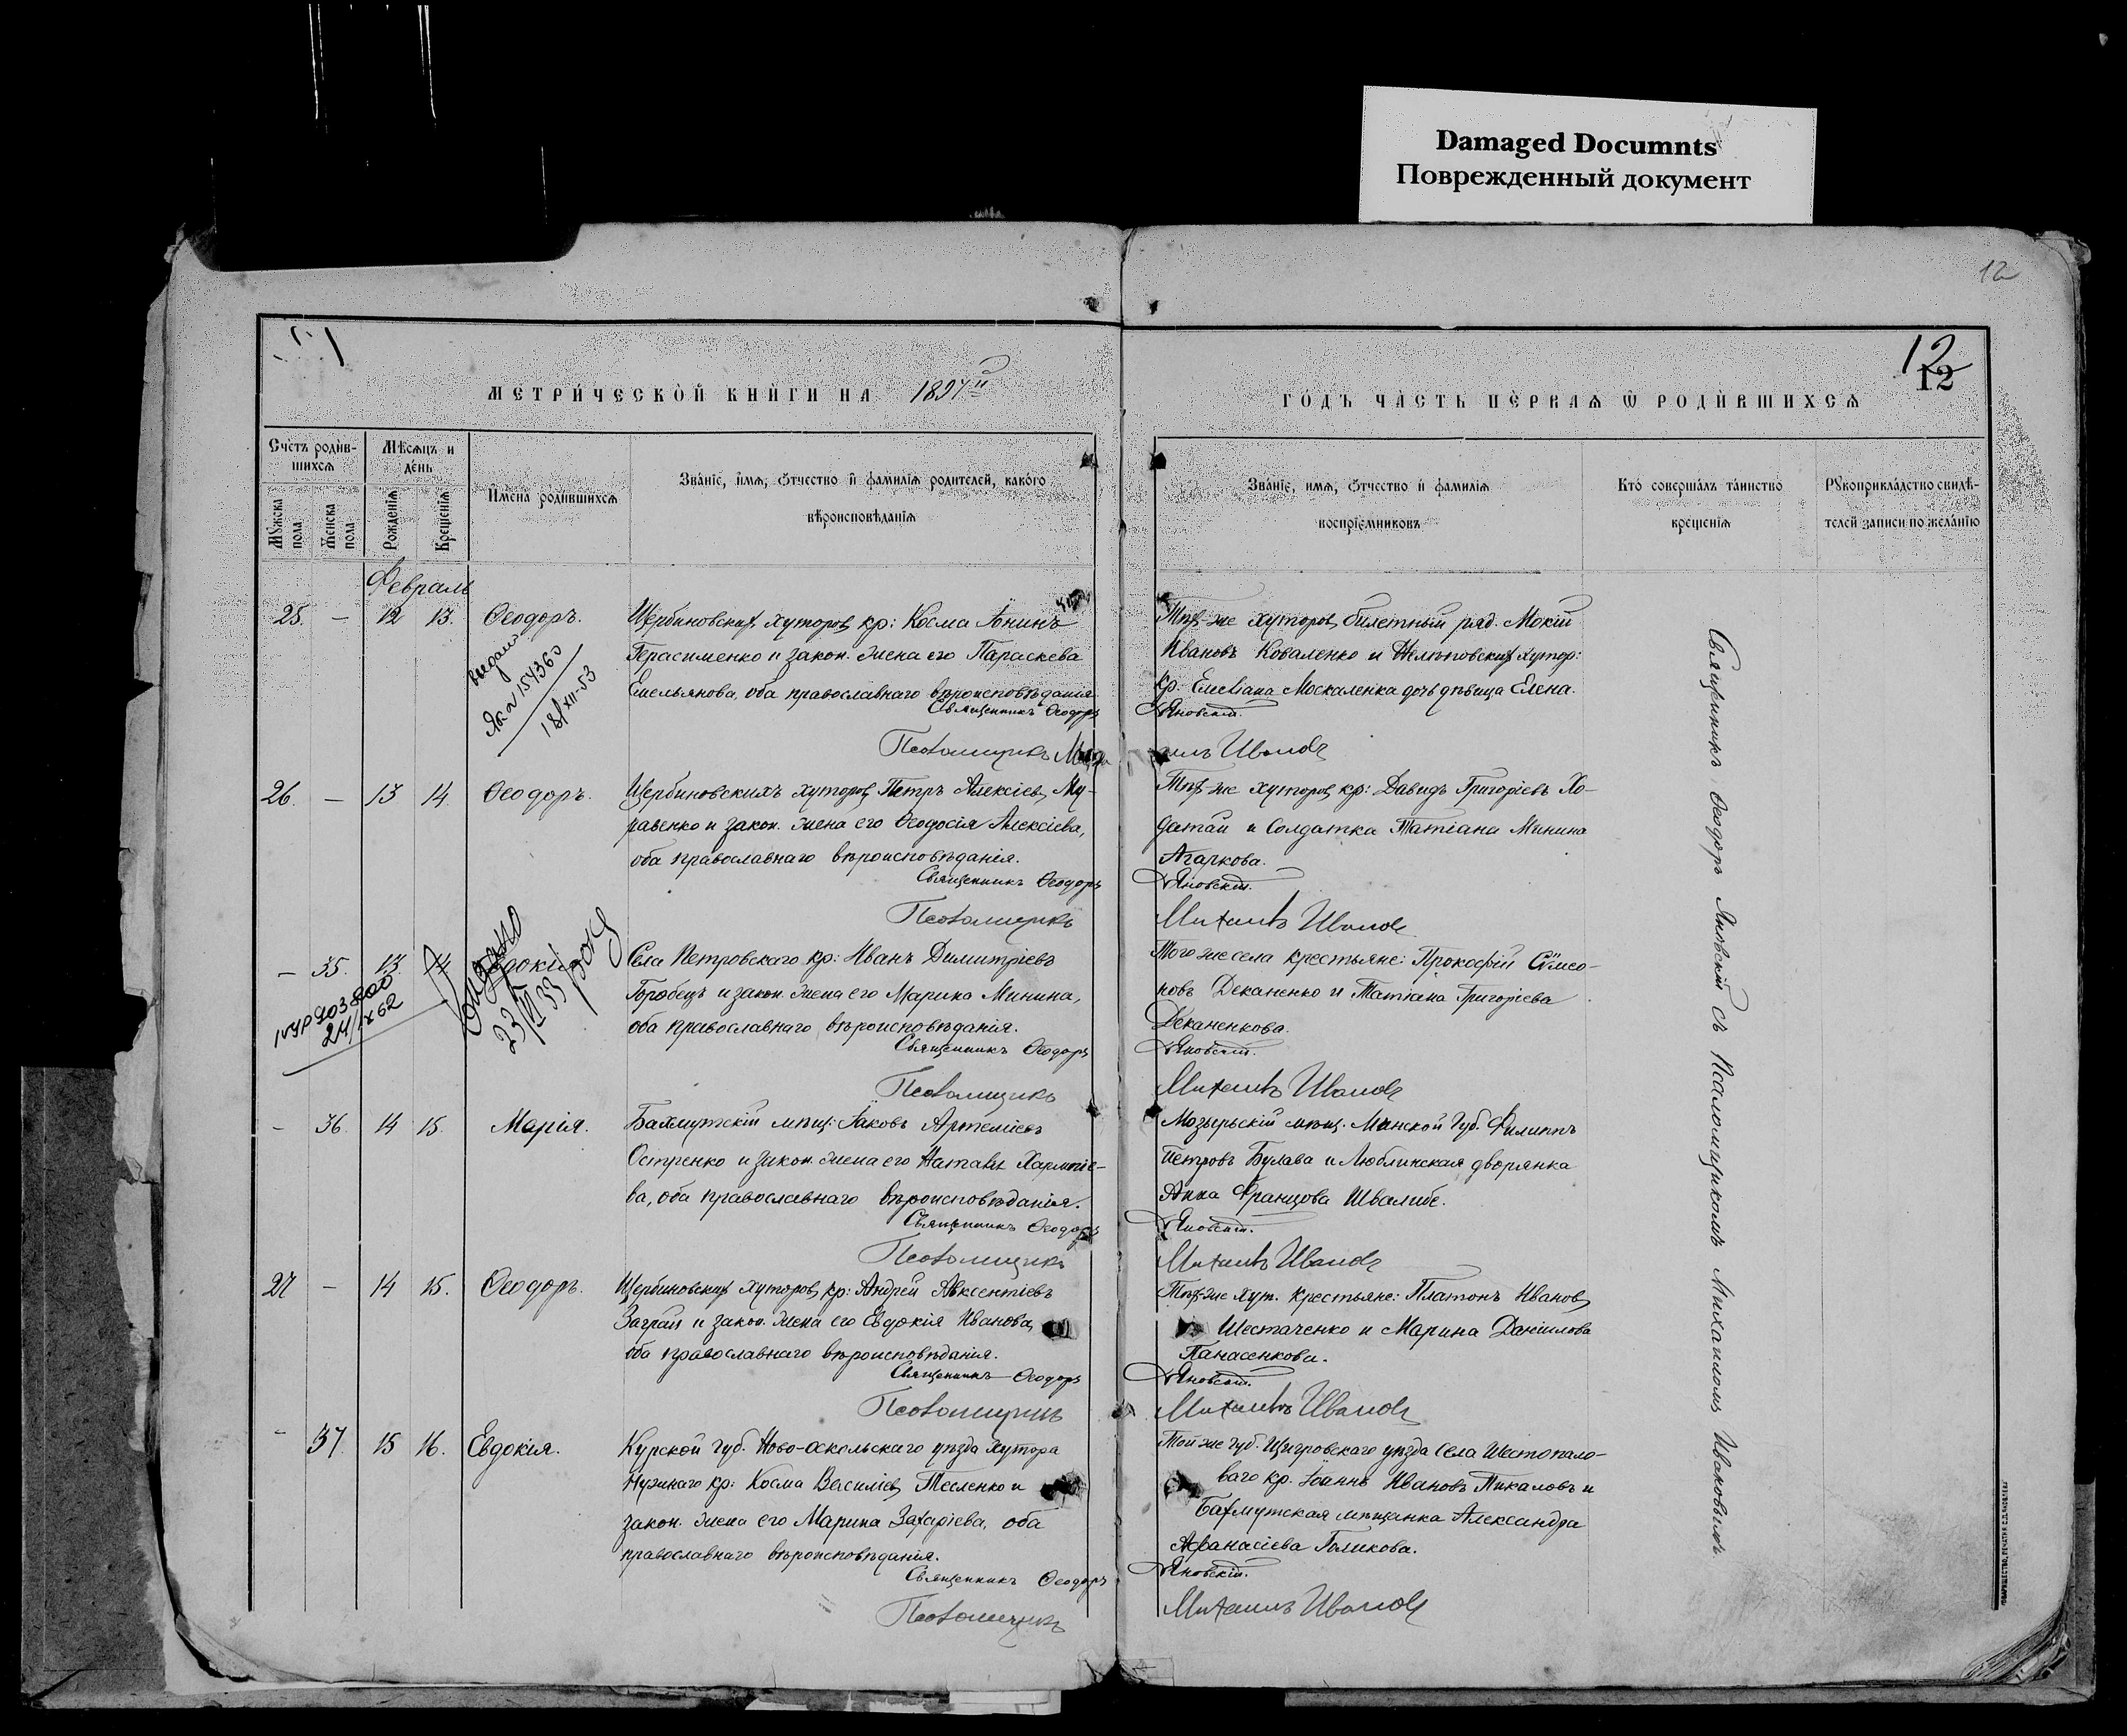 Damaged Documnts
Поврежденный документ
12
12
12
МЕТРИ́ЧЕСКОЙ КНИ́ГИ НА 1897й
ГО́ДЪ ЧА́СТЬ ПЕ́РВАѦ Ѡ РОДИ́ВШИХСѦ
Сче́тъ роди́в-
шихсѧ
Мѣ́сѧцъ и
де́нь
Мꙋжска
пола
Женска
пола
Рожденїѧ
Крещенїѧ
Имена̀ роди́вшихсѧ
Зва́нїе, и́мѧ, ѻ́тчество и фами́лїѧ роди́телей, како́го
вѣроисповѣ́данїѧ
Зва́нїе, и́мѧ, ѻ́тчество и фами́лїѧ
воспрїе́мниковъ
Кто̀ соверша́лъ та́инство
креще́нїѧ
Рꙋкоприкла́дство свидѣ́-
телей записи по жела́нїю
Февраль
25. – 12 13. Ѳеодоръ.
Щербиновских хуторов кр: Косма Іонинъ
Герасименко и закон. жена его Параскева
Емельянова, оба православнаго вѣроисповѣданія
Священникъ Ѳеодоръ
Псаломщикъ
Тѣхъ-же хуторов билетный ряд. Мокій
Ивановъ Коваленко и Нелѣповских хутор:
кр. Москаленка дочь дѣвица Елена.
Яновскій.
Ивановъ
выдан
154360
18/XII-53
26. – 13 14. Ѳеодоръ.
Щербиновскихъ хуторов Петръ Алексіев Му-
равенко и закон. жена его Ѳеодосія Алексіева,
оба православнаго вѣроисповѣданія.
Священникъ Ѳеодоръ
Псаломщикъ
Тѣхъ-же хуторов кр: Давидъ Григоріевъ Хо-
дотай и Солдатка Татіана Минина
Агаркова.
Яновскій.
Михаилъ Ивановъ
– 35. 13. 14 Евдокія
Выдано
23/VI 33 року
Села Петровскаго кр: Иванъ Димитріевъ
Горобецъ и закон. жена его Марина Минина,
оба православнаго вѣроисповѣданія.
Священникъ Ѳеодоръ
Псаломщикъ
Того же села крестьяне: Прокофій Сѵмео-
новъ Деканенко и Татіана Григоріева
Деканенкова.
Яновскій.
Михаилъ Ивановъ
– 36. 14 15. Марія.
Бахмутскій мѣщ: Іаковъ Артеміевъ
и закон. жена его Наталія
ва, оба православнаго вѣроисповѣданія.
Священникъ Ѳеодоръ
Псаломщикъ
Мозырьскій мѣщ. Минской Губ. Филиппъ
Петровъ Булава и Люблинская дворянка
Анна Францова Швалибе.
Яновскій.
Михаилъ Ивановъ
27 – 14 15. Ѳеодоръ.
Щербиновских хуторов кр: Андрей Авксентіевъ
Заграй и закон. жена его Евдокія Иванова,
оба православнаго вѣроисповѣданія.
Священникъ Ѳеодоръ
Псаломщикъ
Тѣхъ-же хут. крестьяне: Платонъ Иванов
Шестаченко и Марина Даніилова
Панасенкова.
Яновскій.
Михаилъ Ивановъ
– 37. 15 16. Евдокія.
Курской губ. Ново-оскольскаго уѣзда хутора
кр: Косма Василіев Тесленко и
закон. жена его Марина Захаріева, оба
православнаго вѣроисповѣданія.
Священникъ Ѳеодоръ
Псаломщикъ
Той же губ. Щигровскаго уѣзда села Шестопало-
ваго кр. Іоаннъ Ивановъ Пикаловъ и
Бахмутская мѣщанка Александра
Афанасіева Голикова.
Яновскій.
Михаилъ Ивановъ
Священникъ Ѳеодоръ Яновскій съ Псаломщикомъ Михаиломъ Ивановымъ